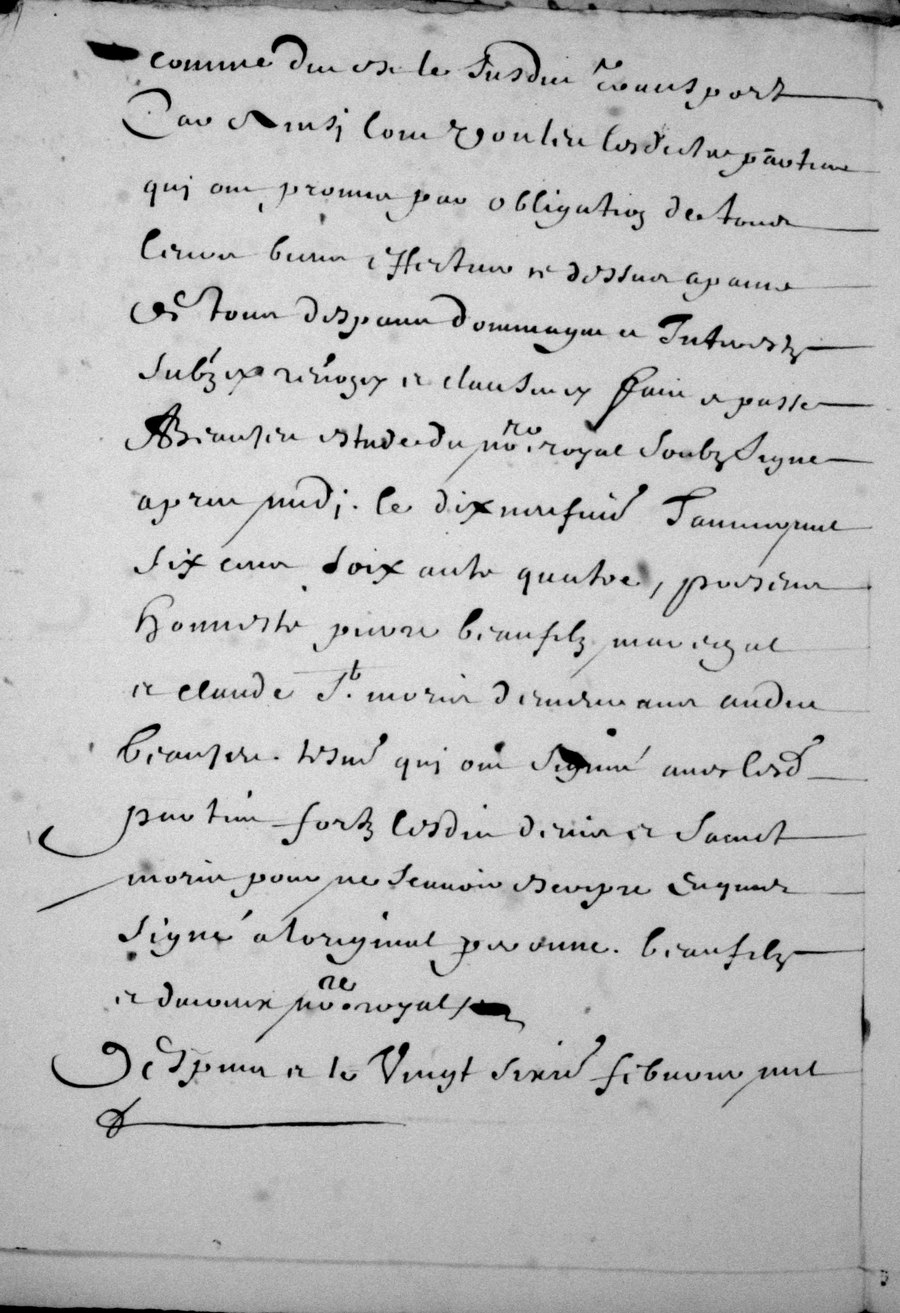 comme dict est le susdict transport
Car Ainsj lont voulcu lesdictes parties
quj ont promis par obligation de tous
leurs biens effectuer ce dessus a paine
de tous despans dommages et Interestz
Subz renoz et clauses Faict et passe
A Beaujeu estude du nore royal Soubz Signe
apres midj. le dix neufie Januier mil
six cens soixante quatre, presens
honneste pierre beaufilz mareschal
et claude St. morin demeurans audict
beaujeu. tesm quj ont signé auec lesd
parties fortz lesdict dernier et sainct
morin pour ne scauoir escripre Enquis
signé a loriginal peronne. beaufilz
et nore royal
Despuis et le Vingt sixie febuuier mil